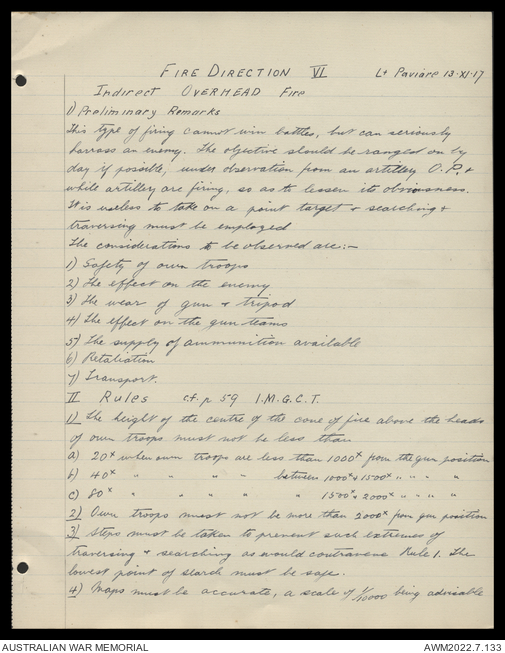 FIRE DIRECTION VI Lt Paviare 13·XI·17
Indirect OVERHEAD Fire
1) Preliminary Remarks
This type of firing cannot win battles, but can seriously
harrass an enemy. The objective should be ranged on by
day if possible, under observation from an artillery O.P. &
while artillery are firing, so as to lessen its obviousness.
It is useless to take on a point target & searching &
traversing must be employed
The considerations to be observed are:-
1) Safety of own troops
2) The effect on the enemy
3) The wear of gun & tripod
4) The effect on the gun teams
5) The supply of ammunition available
6) Retaliation
7) Transport.
II Rules c.f. p 59 I.M.G.C.T.
1) The height of the centre of the cone of fire above the heads
of own troops must not be less than
a) 20x when own troops are less than 1000x from the gun position
b) 40x " " " " " between 1000x & 1500x " " " "
c) 80x " " " " " " 1500x & 2000x " " " "
2) Own troops must not be more than 2000x from gun position
3) Steps must be taken to prevent such extremes of
traversing & searching as would contravene Rule 1. The
lowest point of search must be safe.
4) Maps must be accurate, a scale of 1/10000 being advisable
AUSTRALIAN WAR MEMORIAL AWM2022.7.133